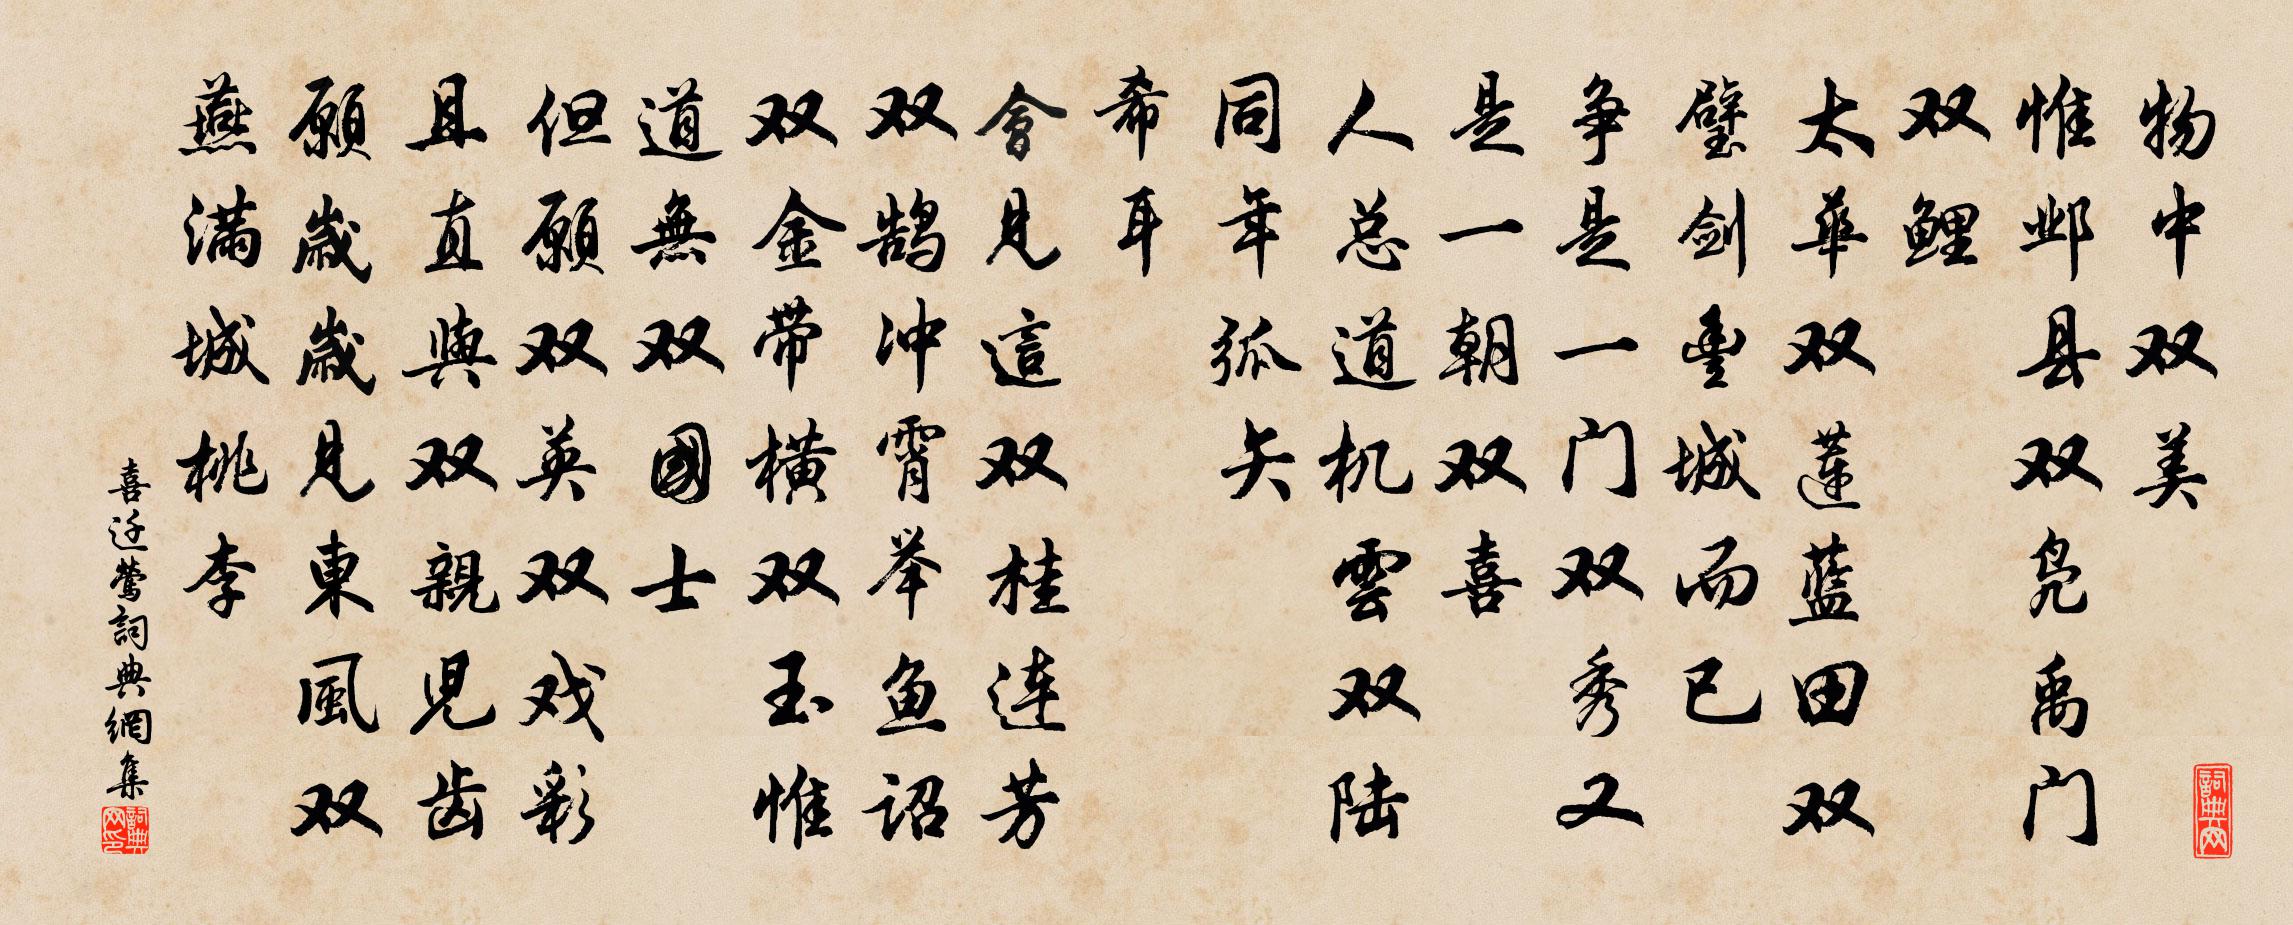 物中双美
惟邺县双凫禹门
双鲤
太華双莲蓝田双
璧剑豊城而已
争是一门双秀又
是一朝双喜
人总道机雲双陆
同年弧矢
希耳
會見這双桂连芳
双鹄冲霄举鱼诏
双金带横双玉惟
道無双國士
但願双英双戏彩
且直與双親児齿
願歲歲見東風双
燕满城桃李
喜迁莺詞典網集
詞典网
詞典网印